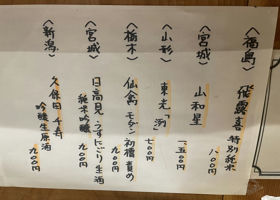 〈福島〉
飛露喜 特別純米
八〇〇円
〈宮城〉
山和 星
一、五〇〇円
〈山形〉
東光「洌」
七〇〇円
〈栃木〉
仙禽 モダン 初槽 責め
九〇〇円
〈宮城〉
日高見 うすにごり生酒
純米吟醸 九〇〇円
〈新潟〉
久保田 千寿
吟醸生原酒
九〇〇円